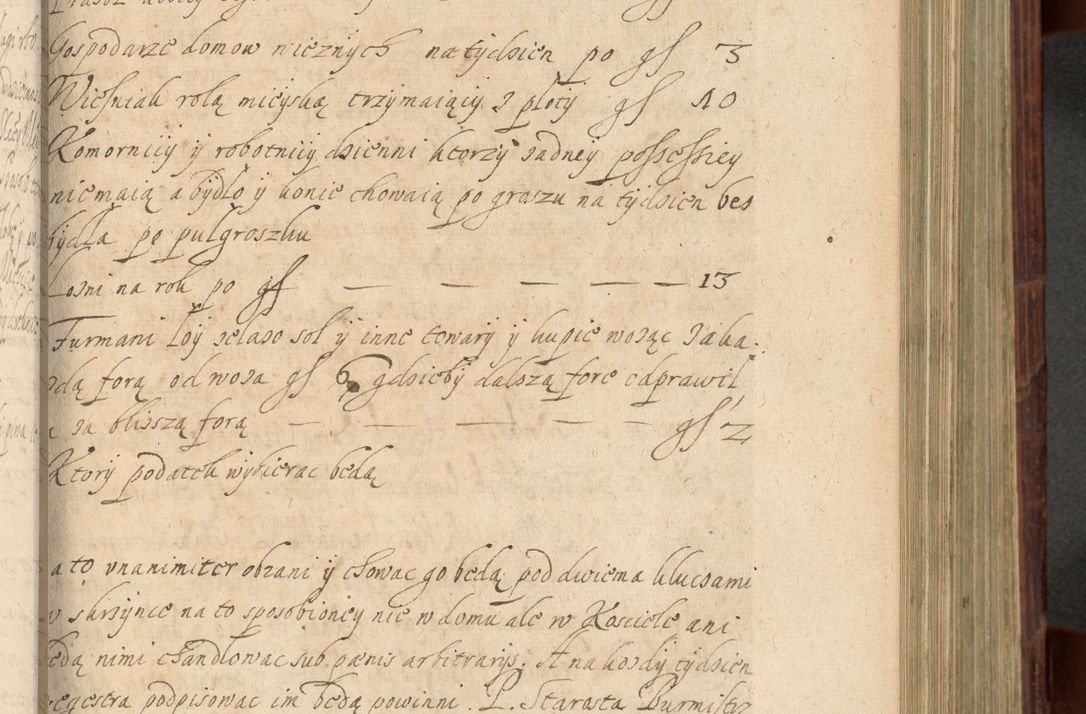 Gospodarze domow niecznych na tydzien po gſ 3
Wieſniak rolą mieyską trzymaiąciy 2 płoty gſ 10
Komorniciy y robotniciy dzienni ktorzy zadney poſseſsiey
nie maią a bydło y konie chowaią po groszu na tydzien bes
bydła po pulgroszku
Loźni na rok po gſ — — — — — 13
Furmani łoy zelazo sol y inne towary y kupie wosząc Zaka.
zdą forą od woza gſ 6 gdzieby dalszą fore odprawił
a za bliszą forą — — — — — gſ 2
Ktory podatek wybierac będą
a to vnanimiter obrani y chowac go będą pod dwiema kluczami
w skrzynce na to sposobioney nie w domu ale w Kosciele ani
będą nimi chandlowac sub pænis arbitrarys. A na kozdy tydzien
regestra podpisowac im będą powinni. P. Starosta Burmistrz